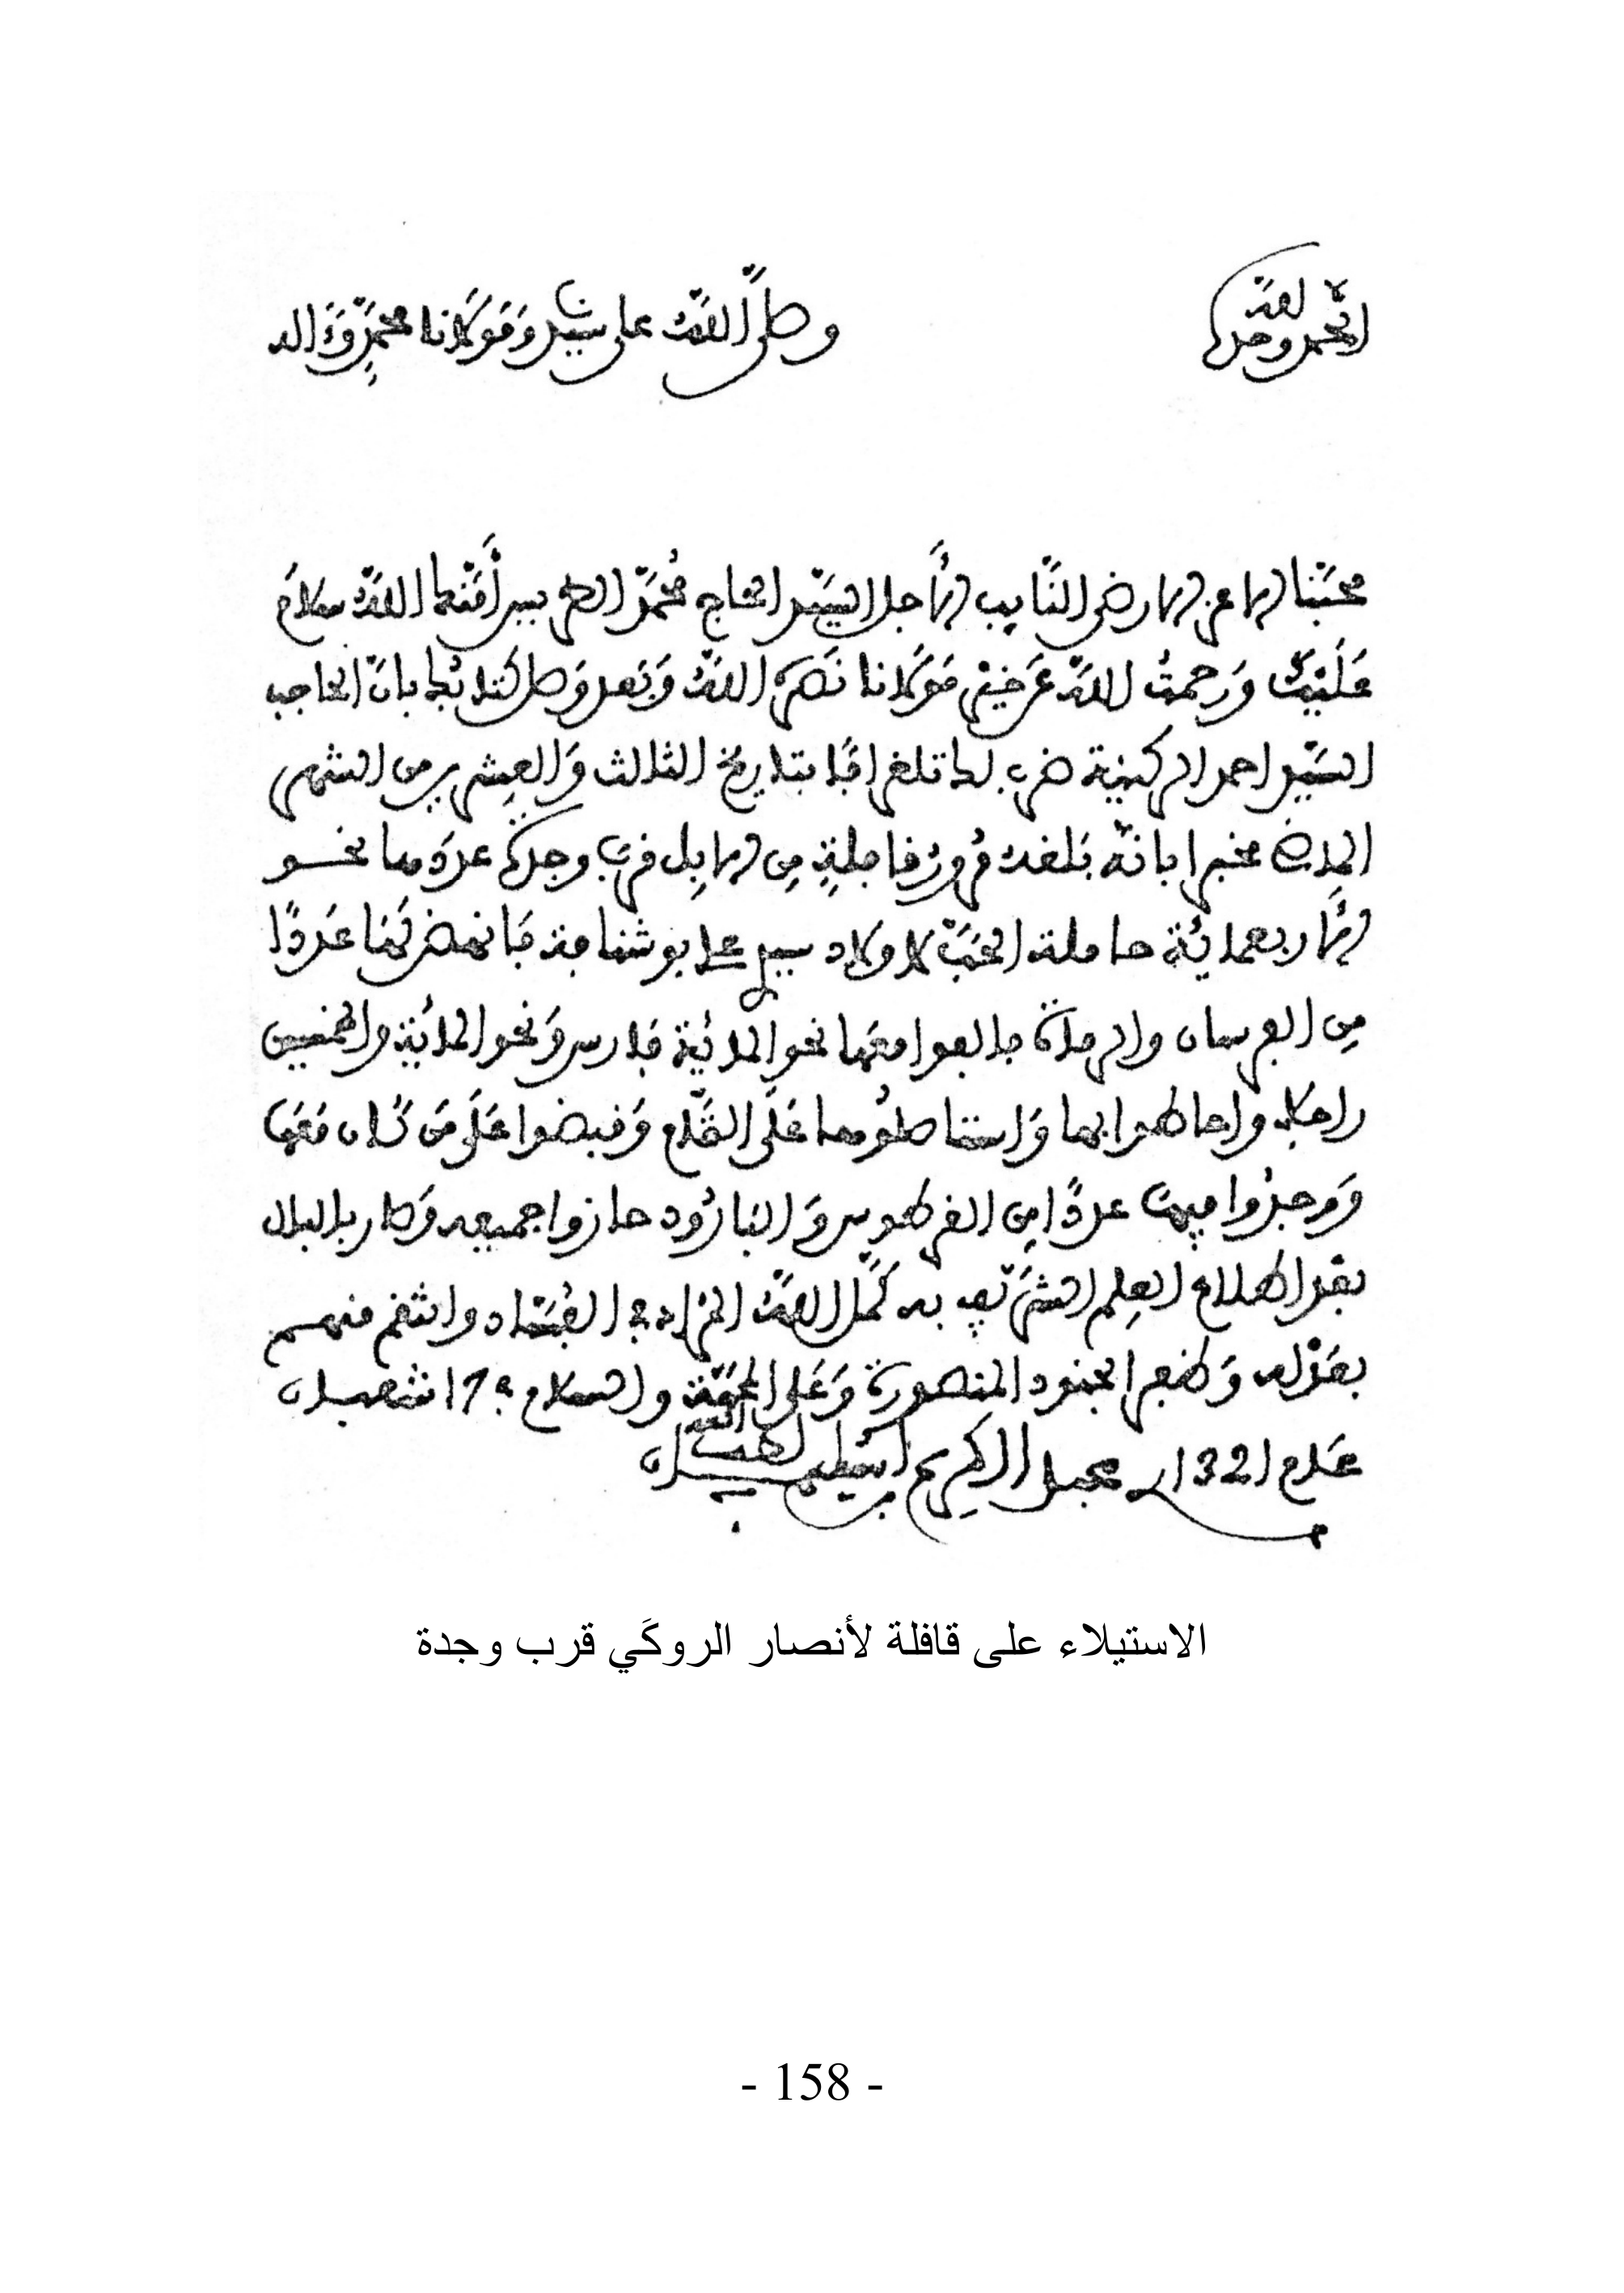 الحمد لله وحده
وصلى الله على سيدنا ومولانا محمد وءاله
محبنا الاعز الارضى النايب الأجل السيد الحاج محمد الطريس أمنكم الله وسلام
عليك ورحمت الله عن خير مولانا نصره الله وبعد وصل كتابكم بان الحاجب
السيد احمد الركينة ضرب لك تلغرافا بتاريخ الثالث والعشرين من الشهر
الماضي مخبرا بانه بلغه مرور قافلة من الابل قرب وجدة عددها نحو
الأربعمائة حاملة الحب لاولاد سيدي علي بوشنافة فانهض لها عددا
من الفرسان والرماة فالفوا معها نحو المائة فارس ونحو المائة والخمسين
راجلا واحاطوا بها واستاصلوها على التمام وقبضوا على من كان معها
ووجدوا فيها عددا من القرطوس والبارود حازوا جميعه وصار بالبال
بعد اطلاع العلم الشريف به كمل الله المراد في الفساد وانتقم منهم
بعدله وظفر الجنود المنصورة وعلى المحبة والسلام في 17 شعبان
عام 1321 عبد الكريم بن سليمان لطف الله به
الاستيلاء على قافلة لأنصار الروكَي قرب وجدة
- 158 -